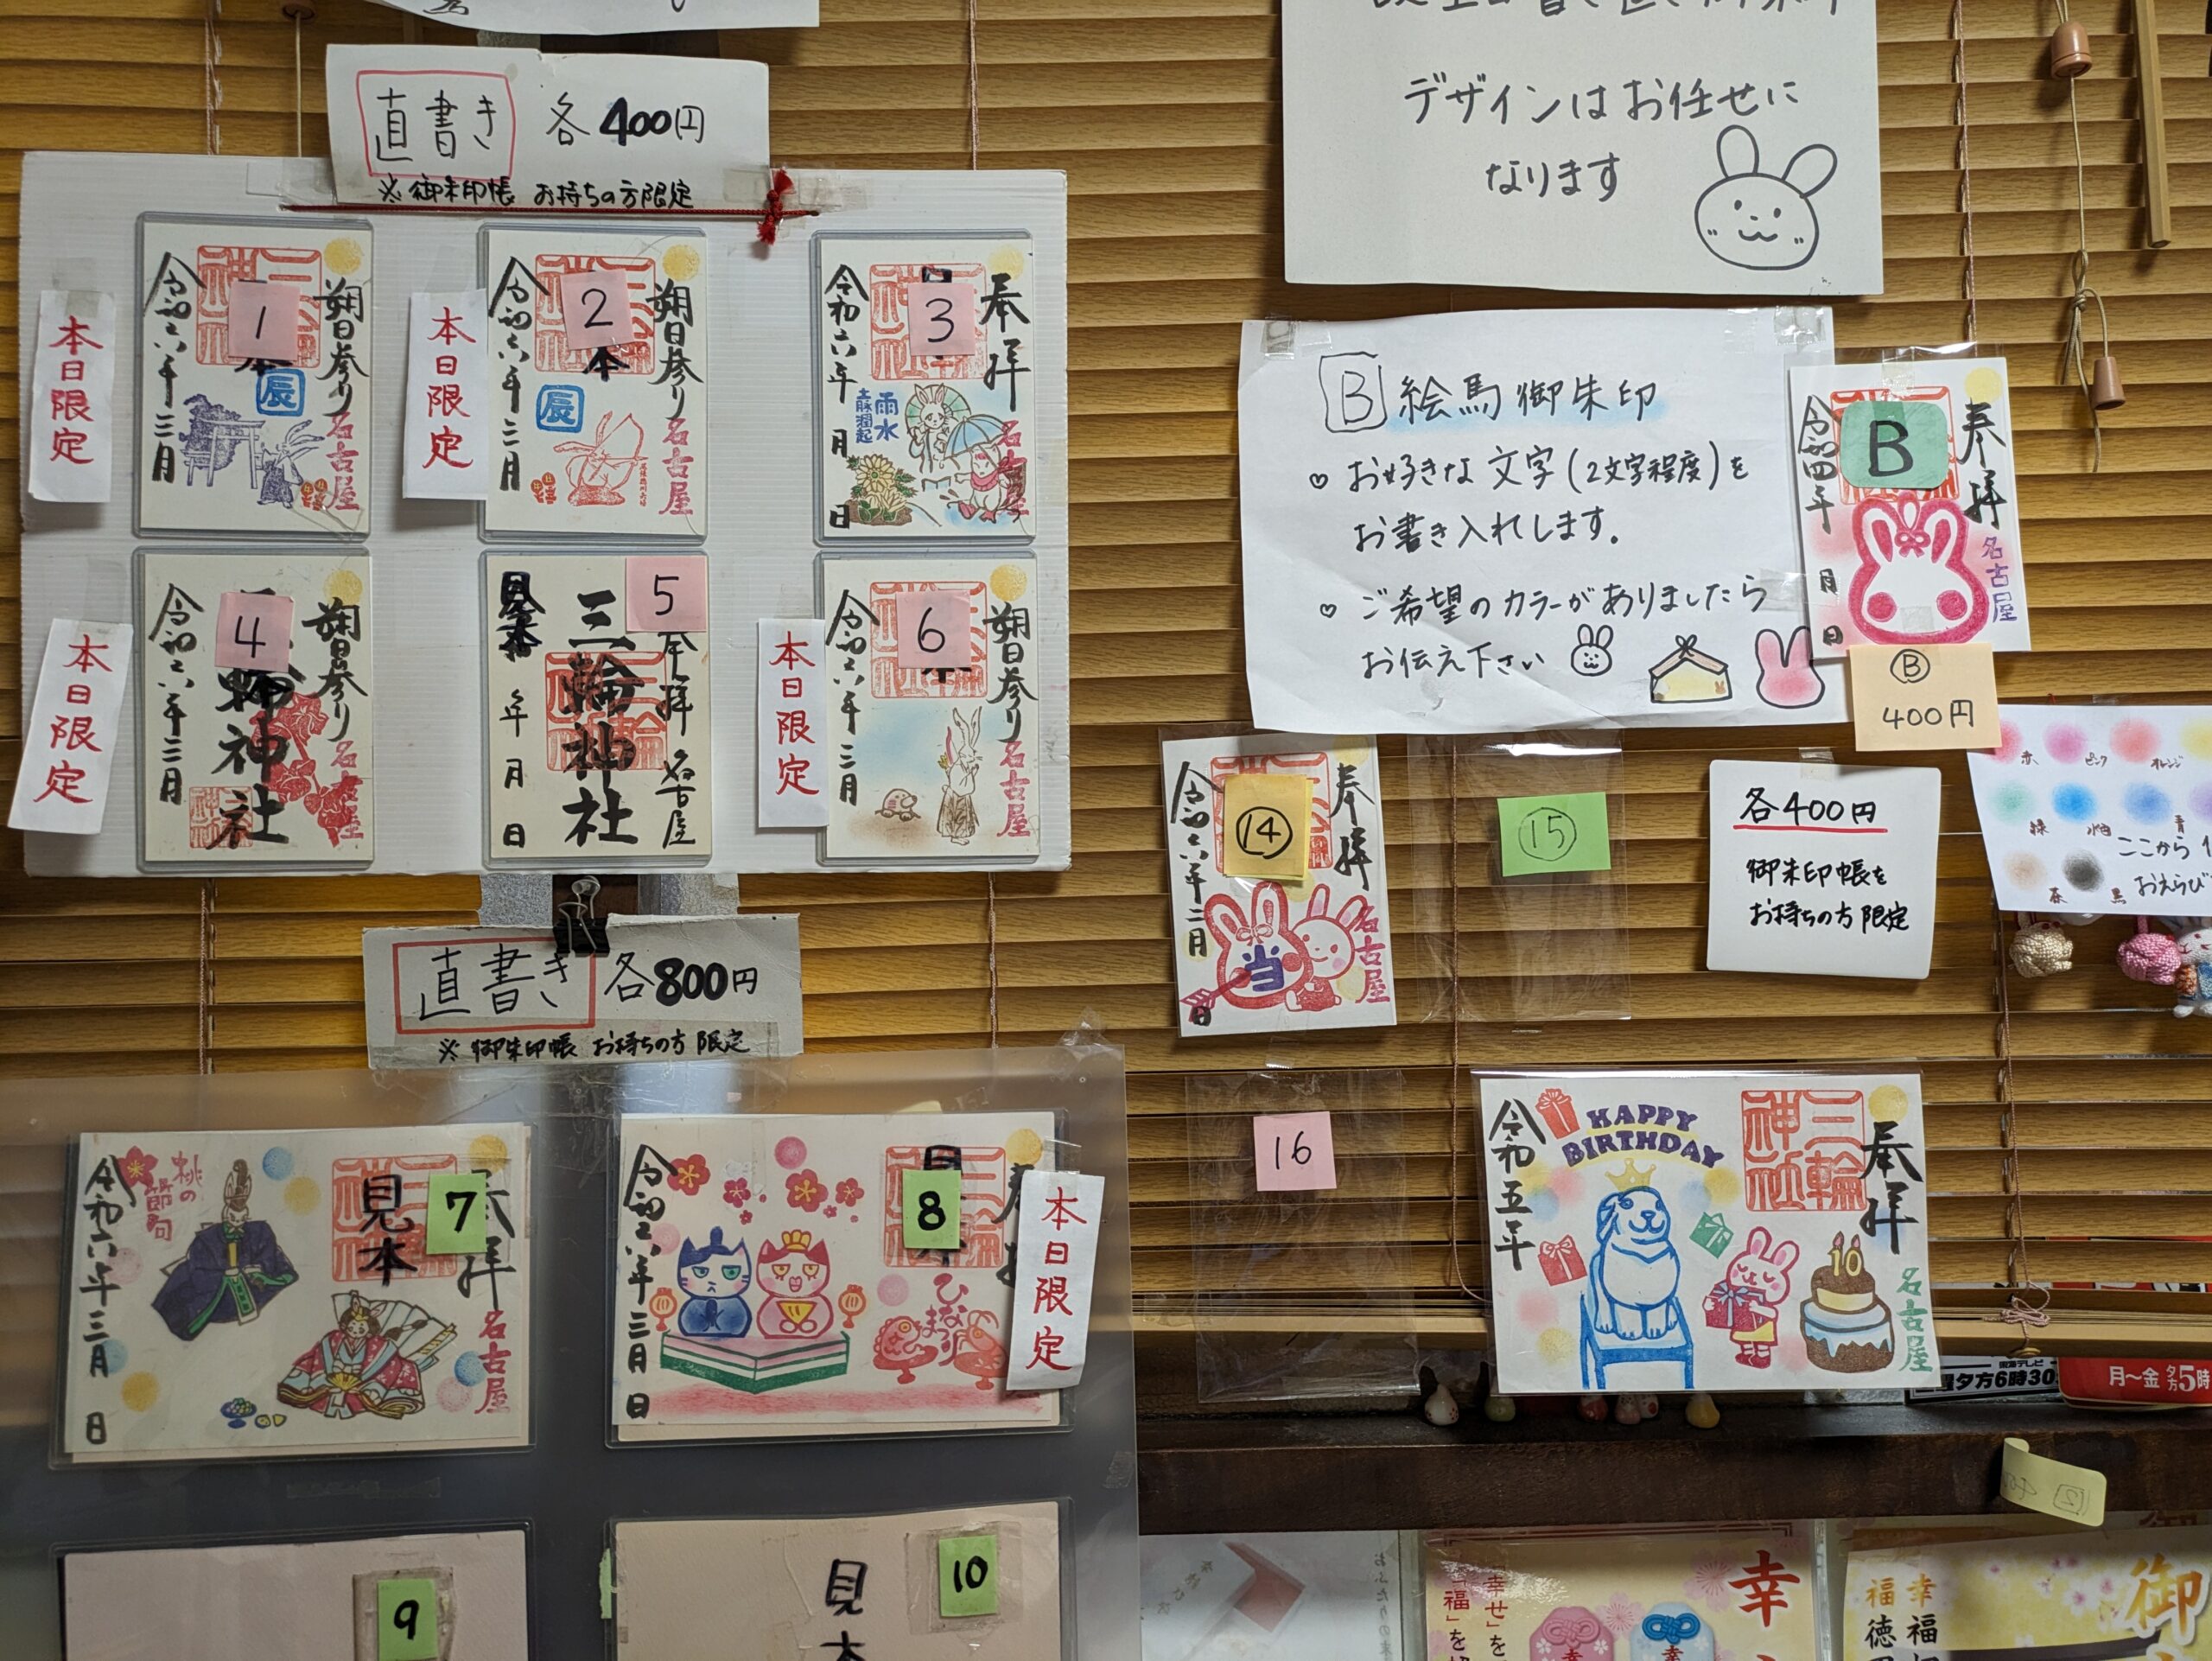 直書き 各400円
※御朱印帳 お持ちの方限定
本日限定
令和六年 三月
1
辰
朔日参り
名古屋
本日限定
令和六年 三月
2
本
辰
朔日参り
名古屋
令和六年 月 日
3
雨水
土脉潤起
奉拝
名古屋
本日限定
令和六年 三月
4
輪神社
朔日参り
名古屋
見本
年 月 日
三輪神社
5
奉拝 名古屋
本日限定
令和六年 三月
6
朔日参り
名古屋
直書き 各800円
※御朱印帳 お持ちの方限定
令和六年 三月 日
桃の節句
見本
7
奉拝
名古屋
令和六年 三月 日
8
ひなまつり
本日限定
9
見本
10
デザインはお任せに
なります
B 絵馬御朱印
♡ お好きな文字(2文字程度)を
お書き入れします。
♡ ご希望のカラーがありましたら
お伝え下さい
令和四年 月 日
B
奉拝
名古屋
Ⓑ
400円
令和六年 二月 日
⑭
当
奉拝
名古屋
⑮
各400円
御朱印帳を
お持ちの方限定
赤 ピンク オレンジ
緑 水色 青
茶 黒
ここから
おえらび
16
令和五年
HAPPY
BIRTHDAY
10
三輪神社
奉拝
名古屋
夕方6時30
月〜金 夕方5時
「幸せ」を
「福」を
幸
御
幸福
福徳